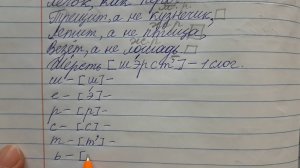 Легок, как перо
Трещит, а не кузнечик,
Летит, а не птица,
Везёт, а не лошадь
Шерсть [шэрст'] - 1 слог.
ш - [ш] -
е - [э] -
р - [р] -
с - [с] -
т - [т'] -
ь - [